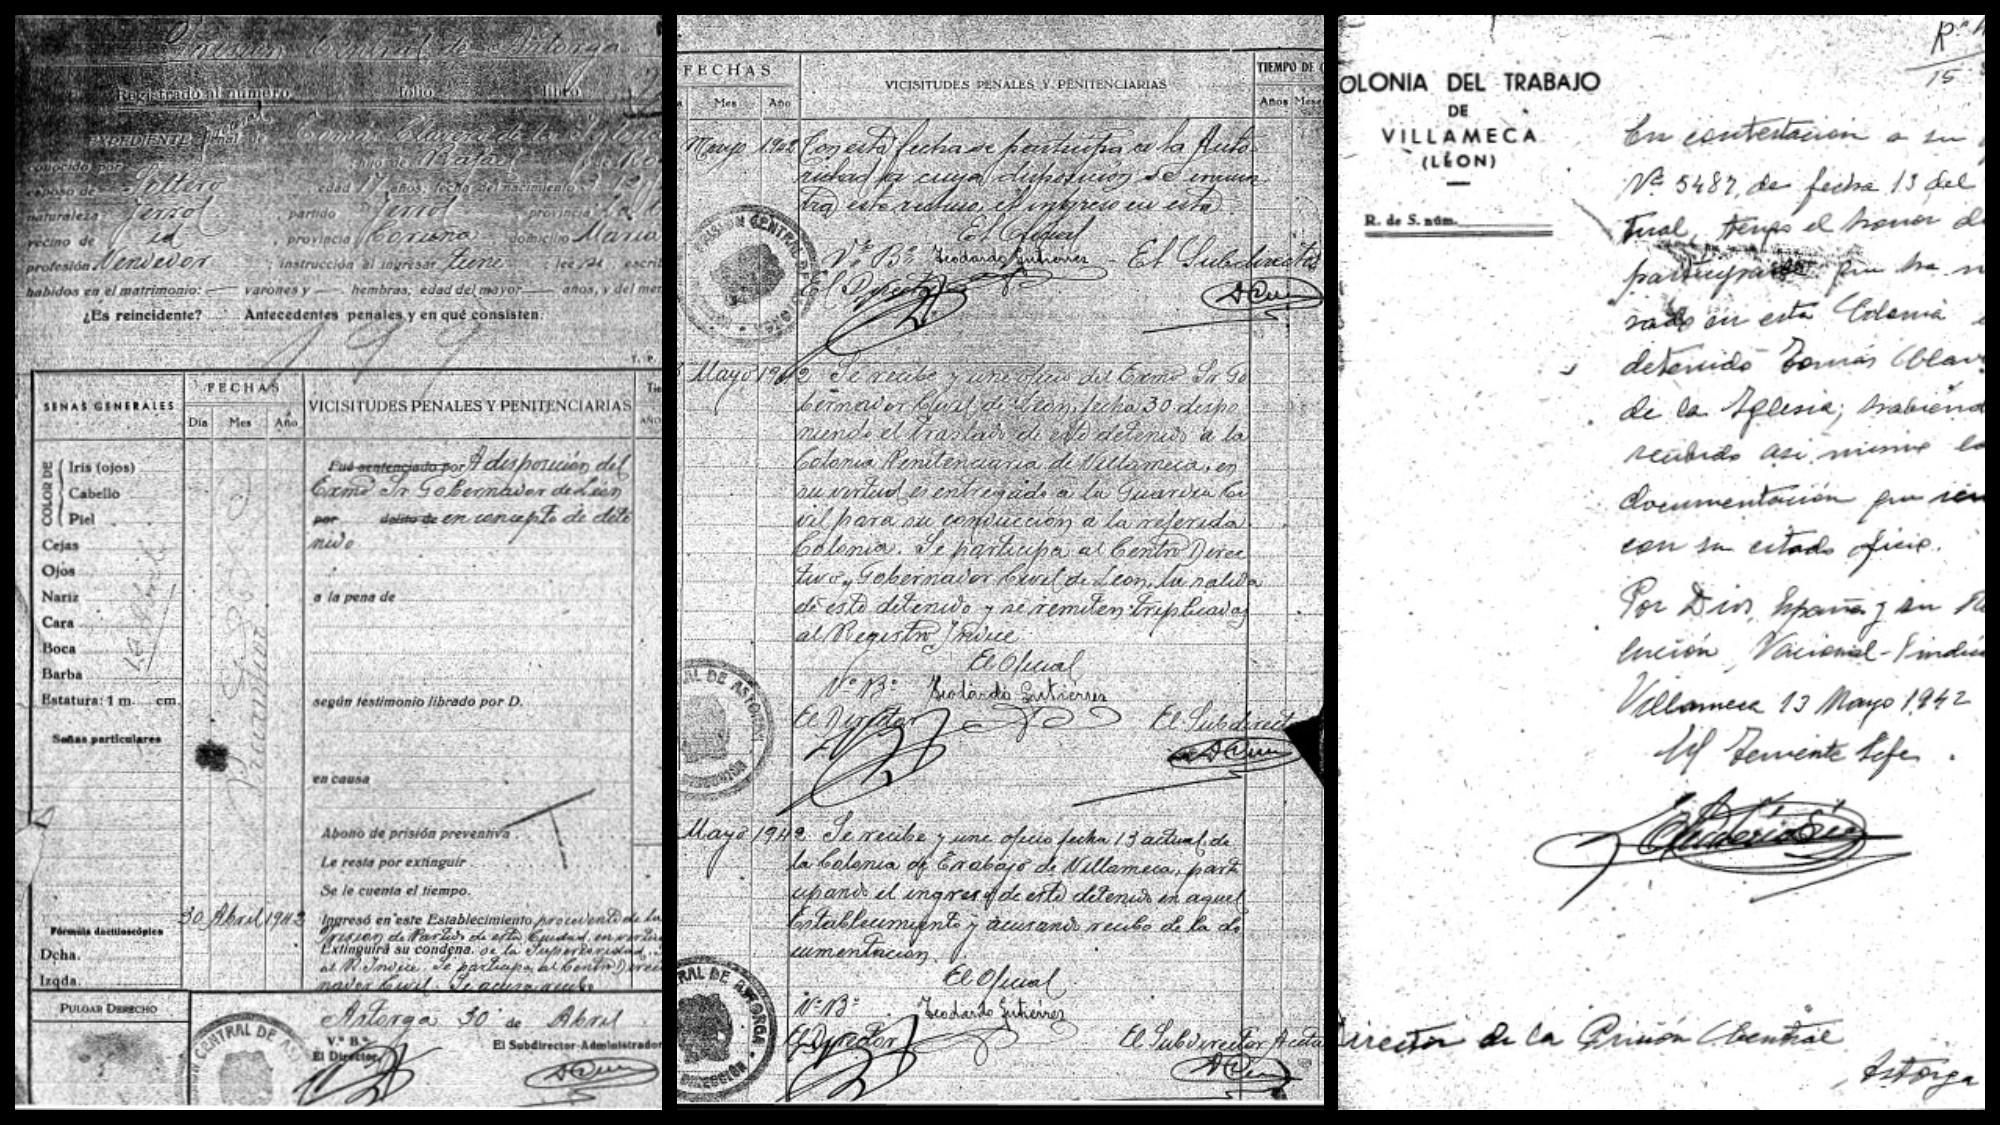 Prisión Central de Astorga
Registrado al número folio libro
EXPEDIENTE penal de Tomás Alvarez de la Iglesia
conocido por hijo de Rafael y de Ro
esposo de Soltero edad 17 años, fecha del nacimiento
naturaleza Ferrol, partido Ferrol provincia La
vecino de id, provincia Coruña domicilio María
profesión Vendedor, instrucción al ingresar tiene; lee si escri
habidos en el matrimonio: varones y hembras; edad del mayor años, y del men
¿Es reincidente? Antecedentes penales y en qué consisten.
T. P.
SEÑAS GENERALES
FECHAS
Día Mes Año
VICISITUDES PENALES Y PENITENCIARIAS
Tie
AÑO
COLOR DE
Iris (ojos)
Cabello
Piel
Cejas
Ojos
Nariz
Cara
Boca
Barba
Estatura: 1 m. cm.
Señas particulares
Fué sentenciado por A disposición del
Exmo Sr Gobernador de León
por delito de en concepto de dete
nido
a la pena de
según testimonio librado por D.
en causa
Abono de prisión preventiva
Le resta por extinguir
Se le cuenta el tiempo.
30 Abril 1942 Ingresó en este Establecimiento procedente de la
Prisión de Partido de esta Ciudad, en virtu
Extinguirá su condena. de la Superioridad.
al R. Indice. Se participa al Centro Direc
nador Civil. Se acusa recibo
Fórmula dactiloscópica
Dcha.
Izqda.
PULGAR DERECHO
CENTRAL DE AS
Astorga 30 de Abril
V.º B.º
El Director,
El Subdirector-Administrador
FECHAS
Mes Año
VICISITUDES PENALES Y PENITENCIARIAS
TIEMPO DE C
Años Mese
Mayo 1942 Con esta fecha se participa a la Auto
ridad a cuya disposición se encuen
tra este recluso, el ingreso en esta
El Oficial
Vº Bº Teodardo Gutiérrez El Subdirector
El Director
PRISIÓN CENTRAL DE ASTORGA
Mayo 1942 Se recibe y une oficio del Exmo Sr Go
bernador Civil de León, fecha 30 dispo
niendo el traslado de este detenido a la
Colonia Penitenciaria de Villameca, en
su virtud es entregado a la Guardia Ci
vil para su conducción a la referida
Colonia. Se participa al Centro Direc
tivo y Gobernador Civil de León, la salida
de este detenido y se remiten triplicadas
al Registro Indice
El Oficial
Vº Bº Teodardo Gutiérrez
El Director El Subdirect
RAL DE ASTORGA
DIRECCIÓN
Mayo 1942 Se recibe y une oficio fecha 13 actual de
la Colonia de Trabajo de Villameca, parti
cipando el ingreso de este detenido en aquel
Establecimiento y acusando recibo de la do
cumentación
El Oficial
Vº Bº Teodardo Gutiérrez
El Director El Subdirector
RAL DE ASTORGA
DIRECCIÓN
15
OLONIA DEL TRABAJO
DE
VILLAMECA
(LEON)
R. de S. núm.
En contestación a su
Nº 5487, de fecha 13 del
tual, tengo el honor de
participar que ha
sado en esta Colonia
detenido Tomás Alvar
de la Iglesia; habiend
recibido asi mismo la
documentación que
con su citado oficio.
Por Dios, España y su
lución Nacional-Sindic
Villameca 13 Mayo 1942
El Teniente Jefe.
irector de la Prisión Central
Astorga